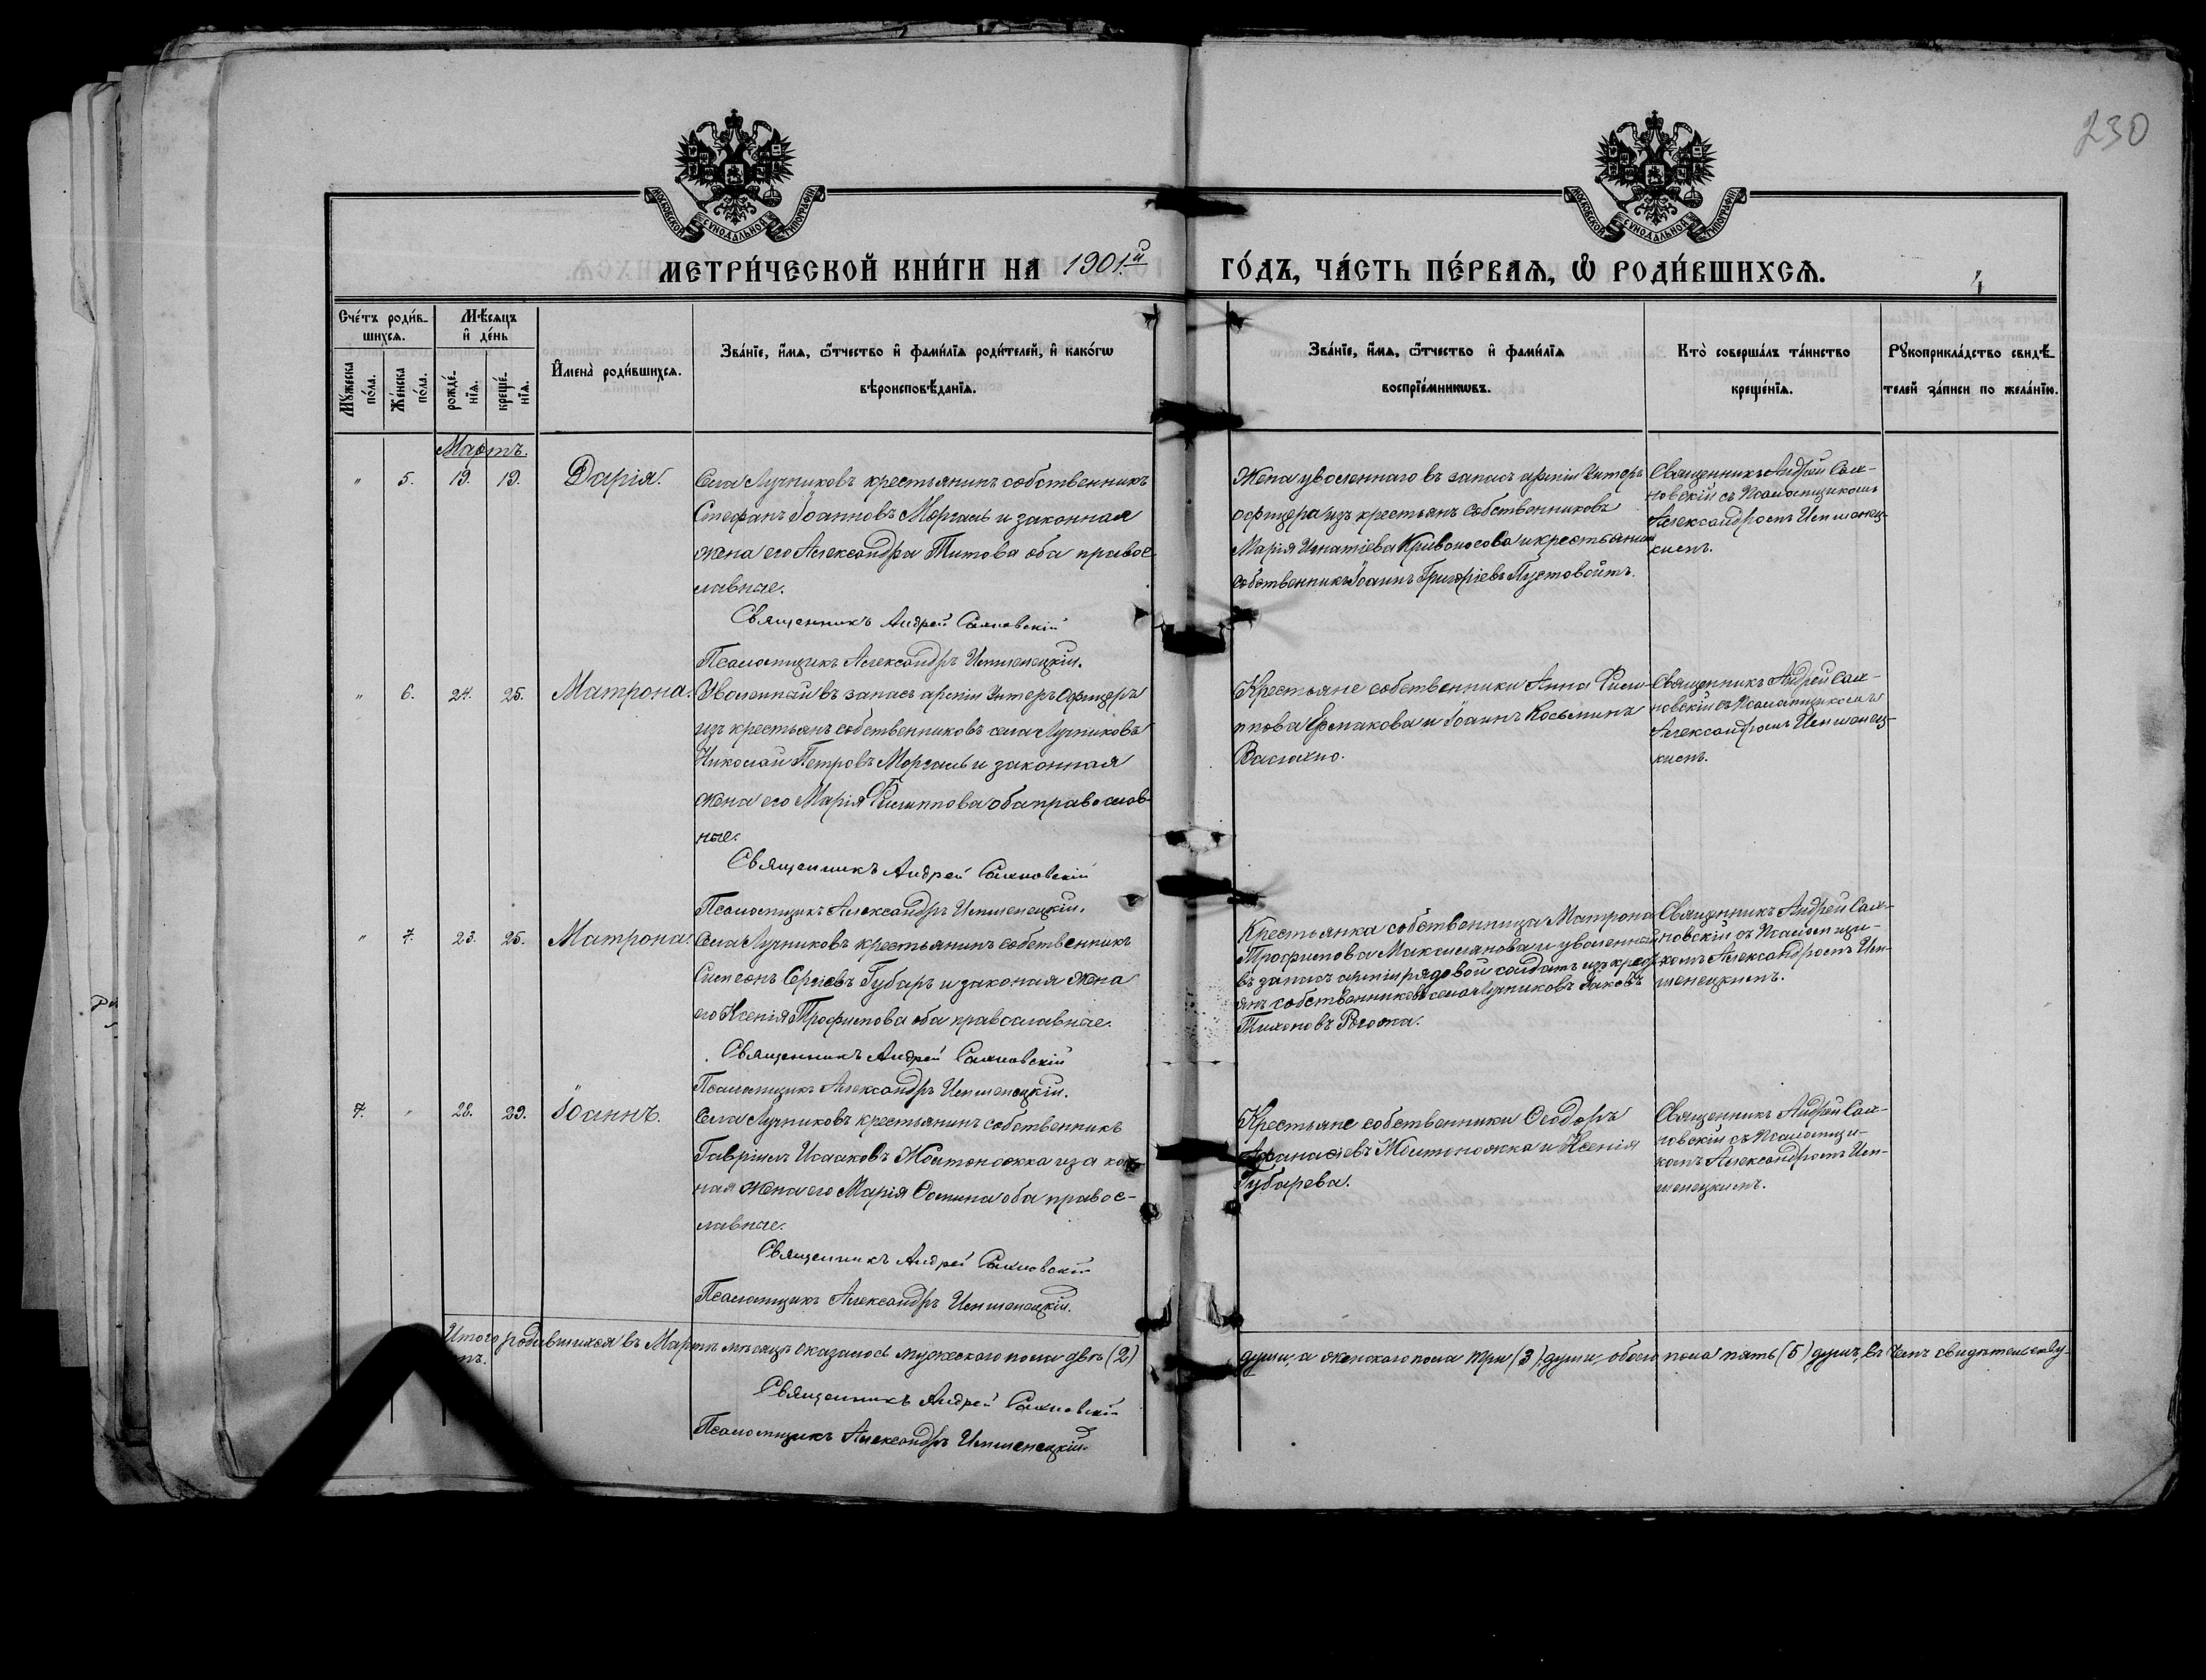 230
МОСКОВСКОЙ СУНОДАЛЬНОЙ ТИПОГРАФІИ
МОСКОВСКОЙ СУНОДАЛЬНОЙ ТИПОГРАФІИ
МЕТРИ́ЧЕСКОЙ КНИ́ГИ НА 1901.й ГО́ДЪ, ЧА́СТЬ ПЕ́РВАѦ, Ѡ҆ РОДИ́ВШИХСѦ.
4
Сче́тъ роди́в-
шихсѧ.
Мꙋ́жеска по́ла.
Же́нска по́ла.
Мѣ́сѧцъ
и҆ де́нь
рожде́-
нїѧ.
креще́-
нїѧ.
И҆мена̀ роди́вшихсѧ.
Зва́нїе, и҆́мѧ, ѻ҆́тчество и҆ фами́лїѧ роди́телей, и҆ како́гѡ
вѣроисповѣ́данїѧ.
Зва́нїе, и҆́мѧ, ѻ҆́тчество и҆ фами́лїѧ
воспрїе́мникѡвъ.
Кто̀ соверша́лъ та́инство
креще́нїѧ.
Рꙋкоприкла́дство свидѣ́-
телей за́писи по жела́нїю.
Мартъ.
" 5. 19. 19. Дарія.
Села Лучниковъ крестьянинъ собственникъ
Стефанъ Іоанновъ Моргаль и законная
жена его Александра Титова оба правос
лавные.
Священникъ Андрей Сахновскій
Псаломщикъ Александръ
Жена уволеннаго въ запасъ арміи Унтеръ
офицера изъ крестьянъ собственниковъ
Марія Игнатіева Кривоносова и крестьянин
собственникъ Іоаннъ Григоріевъ Пустовойтъ.
Священникъ Андрей Сах-
новскій съ Псаломщикомъ
Александромъ
кимъ.
" 6. 24. 25. Матрона.
Уволенный въ запасъ арміи Унтеръ Офицеръ
изъ крестьянъ собственниковъ села Лучниковъ
Николай Петровъ Моргаль и законная
жена его Марія Филиппова оба православ-
ные.
Священникъ Андрей Сахновскій
Псаломщикъ Александръ
Крестьяне собственники Анна Фили-
ппова Ермакова и Іоаннъ Косьминъ
Васюхно.
Священникъ Андрей Сах-
новскій съ Псаломщикомъ
Александромъ
кимъ.
" 7. 23. 25. Матрона.
Села Лучниковъ крестьянинъ собственникъ
Симеонъ Сергіевъ Губарь и законая жена
его Ксенія Трофимова оба православные.
Священникъ Андрей Сахновскій
Псаломщикъ Александръ
Крестьянка собственница Матрона
Трофимова Максимова и уволенный
въ запасъ арміи рядовой солдатъ изъ крест
янъ собственниковъ села Лучниковъ Іаковъ
Тихоновъ Рогожа.
Священникъ Андрей Сах-
новскій съ Псаломщи-
комъ Александромъ
7. " 28. 29. Іоаннъ.
Села Лучниковъ крестьянинъ собственникъ
Гавріилъ Исааковъ Жовтоножка и за кон
ная жена его Марія Сомина оба правос-
лавные.
Священникъ Андрей Сахновскій
Псаломщикъ Александръ
Крестьяне собственники Ѳеодоръ
Афанасіевъ Жовтоножка и Ксенія
Губарева.
Священникъ Андрей Сах-
новскій съ Псаломщи-
комъ Александромъ
Итого родившихся въ Мартѣ мѣсяцѣ оказалось мужескаго пола двѣ (2) души, а женскаго пола три (3) души, обоего пола пять (5) душъ, въ чемъ свидѣтельству-
емъ.
Священникъ Андрей Сахновскій
Псаломщикъ Александръ